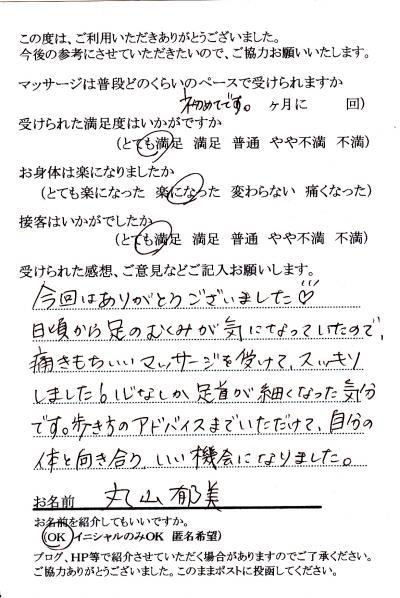 この度は、ご利用いただきありがとうございました。
今後の参考にさせていただきたいので、ご協力お願いいたします。
マッサージは普段どのくらいのペースで受けられますか
初めてです。 ヶ月に 回)
受けられた満足度はいかがですか
(とても満足 満足 普通 やや不満 不満)
お身体は楽になりましたか
(とても楽になった 楽になった 変わらない 痛くなった)
接客はいかがでしたか
(とても満足 満足 普通 やや不満 不満)
受けられた感想、ご意見などご記入お願いします。
今回はありがとうございました♡
日頃から足のむくみが気になっていたので、
痛きもちいいマッサージを受けて、スッキリ
しました!心なしか、足首が細くなった気分
です。歩き方のアドバイスまでいただけて、自分の
体と向き合う、いい機会になりました。
お名前 丸山郁美
お名前を紹介してもいいですか。
(OK イニシャルのみOK 匿名希望)
ブログ、HP等で紹介させていただく場合がありますのでご了承ください。
ご協力ありがとうございました。このままポストに投函してください。